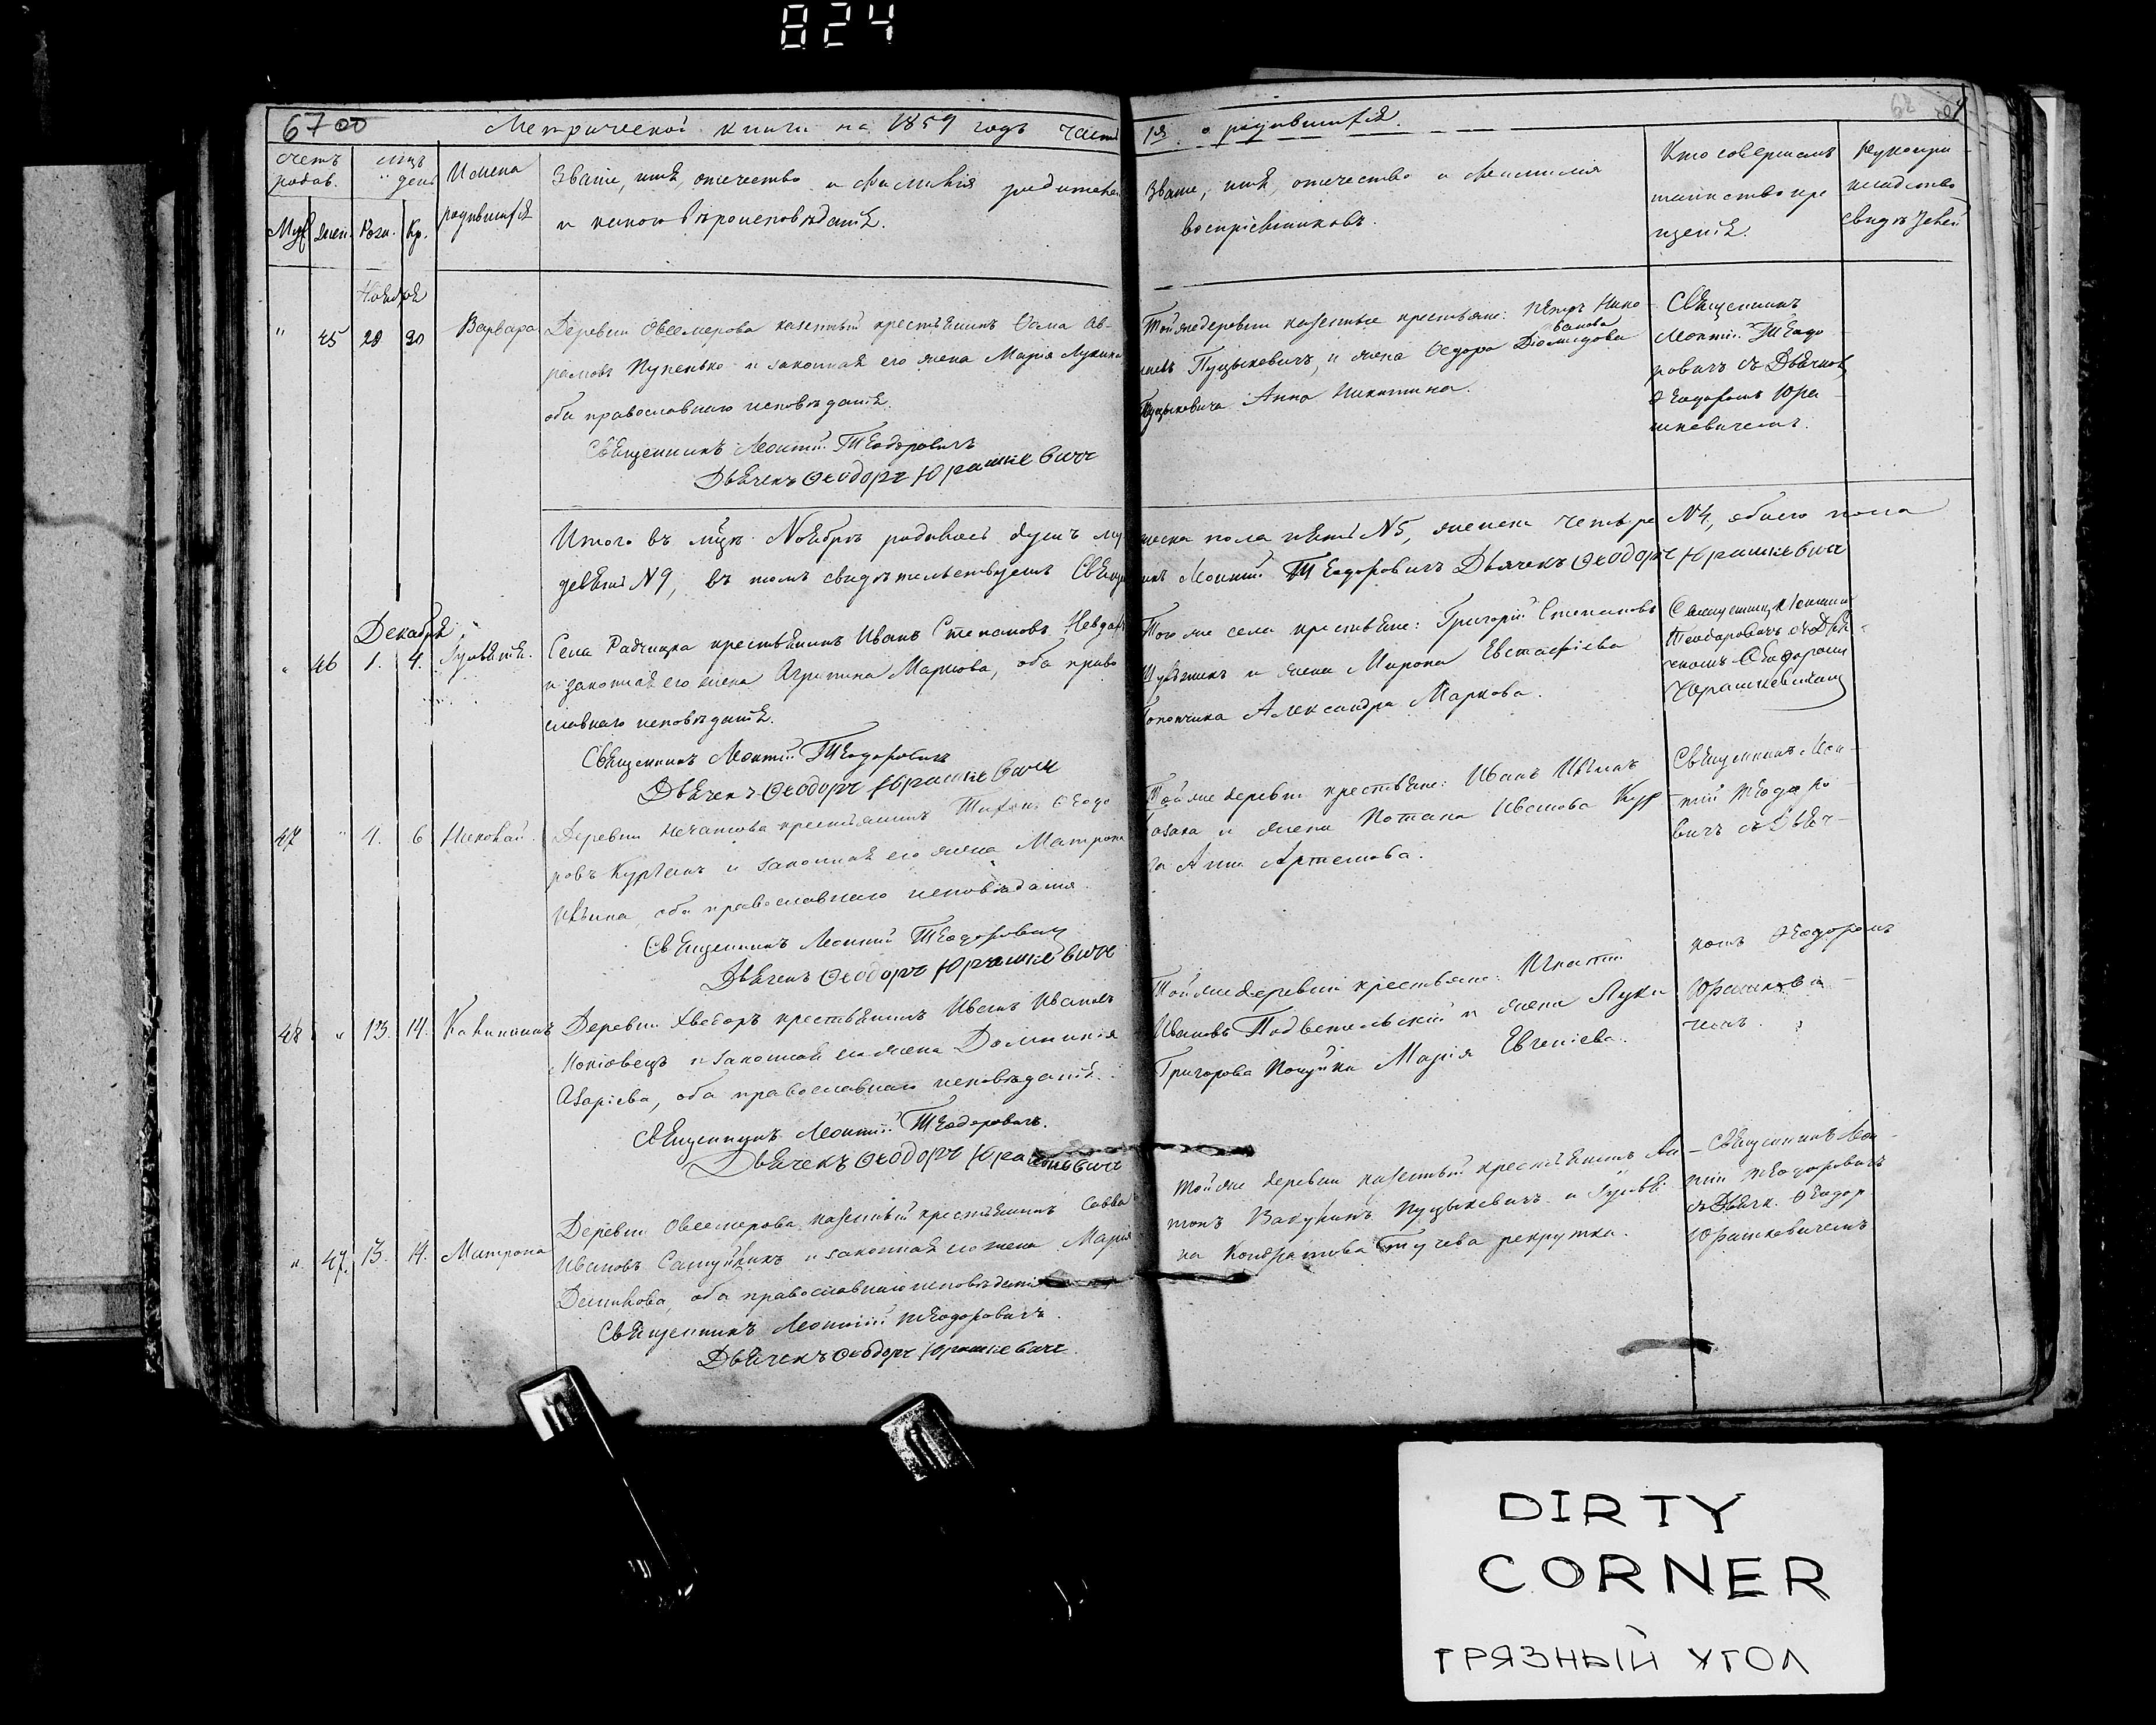 824
6700
Метрической книги на 1859 годъ часть 1я о родившихся.
счетъ родив.
мцъ день
Имена родившихся
Званіе, имя, отечество и фамилія родителей
и какого вѣроисповѣданія.
Званіе, имя, отечество и фамилія
воспріемниковъ.
Кто совершалъ
таинство кре
щенія.
Рукопри
кладство
свидѣтелей
Муж. жен. Рож. Кр.
Ноября
" 45 28 30 Варвара
Деревни Овсемерова казенный крестьянинъ Ѳома Ав-
рамовъ и законная его жена Марія Лукина
оба православнаго исповѣданія.
Священникъ Леонтій Теодоровичъ
Дьячекъ Ѳеодоръ Юрашкевичъ
Тойже деревни казенные крестьяне: Петръ Нико
лаевъ Пуцыковичъ, и жена Ѳедора Діомидова
Пуцыковича Анна Никитина.
Священникъ
Леонтій Теодо
ровичъ съ Дьячком
Ѳеодоромъ Юра
шкевичемъ.
Итого въ мцѣ Ноябрѣ родилось душъ мужеска пола пять №5, женска четыре №4, обоего пола
девять №9, въ томъ свидѣтельствуемъ Священникъ Леонтій Теодоровичъ Дьячекъ Ѳеодоръ Юрашкевичъ
Декабря
" 46 1. 4. Іуліанія.
Села Радчицка крестьянинъ Иванъ Степановъ
и законная его жена Агрипина Маркова, оба право
славнаго исповѣданія.
Священникъ Леонтій Теодоровичъ
Дьячекъ Ѳеодоръ Юрашкевичъ
Того же села крестьяне: Григорій Степановъ
и жена Мирона Евстафіева
Александра Маркова.
Священникъ Леонтій
Теодоровичъ съ Дья-
чкомъ Ѳеодоромъ
Юрашкевичемъ
47 " 4. 6 Николай.
Деревни крестьянинъ Ѳеодо
ровъ и законная его жена Матрона
Ильина, оба православнаго исповѣданія.
Священникъ Леонтій Теодоровичъ
Дьячекъ Ѳеодоръ Юрашкевичъ
Той же деревни крестьяне: Иванъ Ильинъ
и жена Потапа Иванова
Анна Артемова.
Священникъ Леон-
тій Теодоро
вичъ съ Дьяч-
комъ Ѳеодоромъ
Юрашкеви-
чемъ.
48 " 13. 14. Калинникъ
Деревни Хведоръ крестьянинъ Иванъ Ивановъ
и законная его жена Доминикія
Азаріева, оба православнаго исповѣданія.
Священникъ Леонтій Теодоровичъ.
Дьячекъ Ѳеодоръ Юрашкевичъ
Той же деревни крестьяне: Игнатій
Ивановъ и жена Луки
Григорова Марія Евгеніева.
" 47. 13. 14. Матрона
Деревни Овсемерова казенный крестьянинъ Савва
Ивановъ и законная его жена Марія
оба православнаго исповѣданія
Священникъ Леонтій Теодоровичъ.
Дьячекъ Ѳеодоръ Юрашкевичъ
Той же деревни казенный крестьянинъ Ан
тонъ Пуцыкевичъ и Іуліа
на Кондратова рекрутка.
Священникъ Леон-
тій Теодоровичъ
съ Дьячк. Ѳеодор
Юрашкевичемъ
DIRTY
CORNER
ГРЯЗНЫЙ УГОЛ